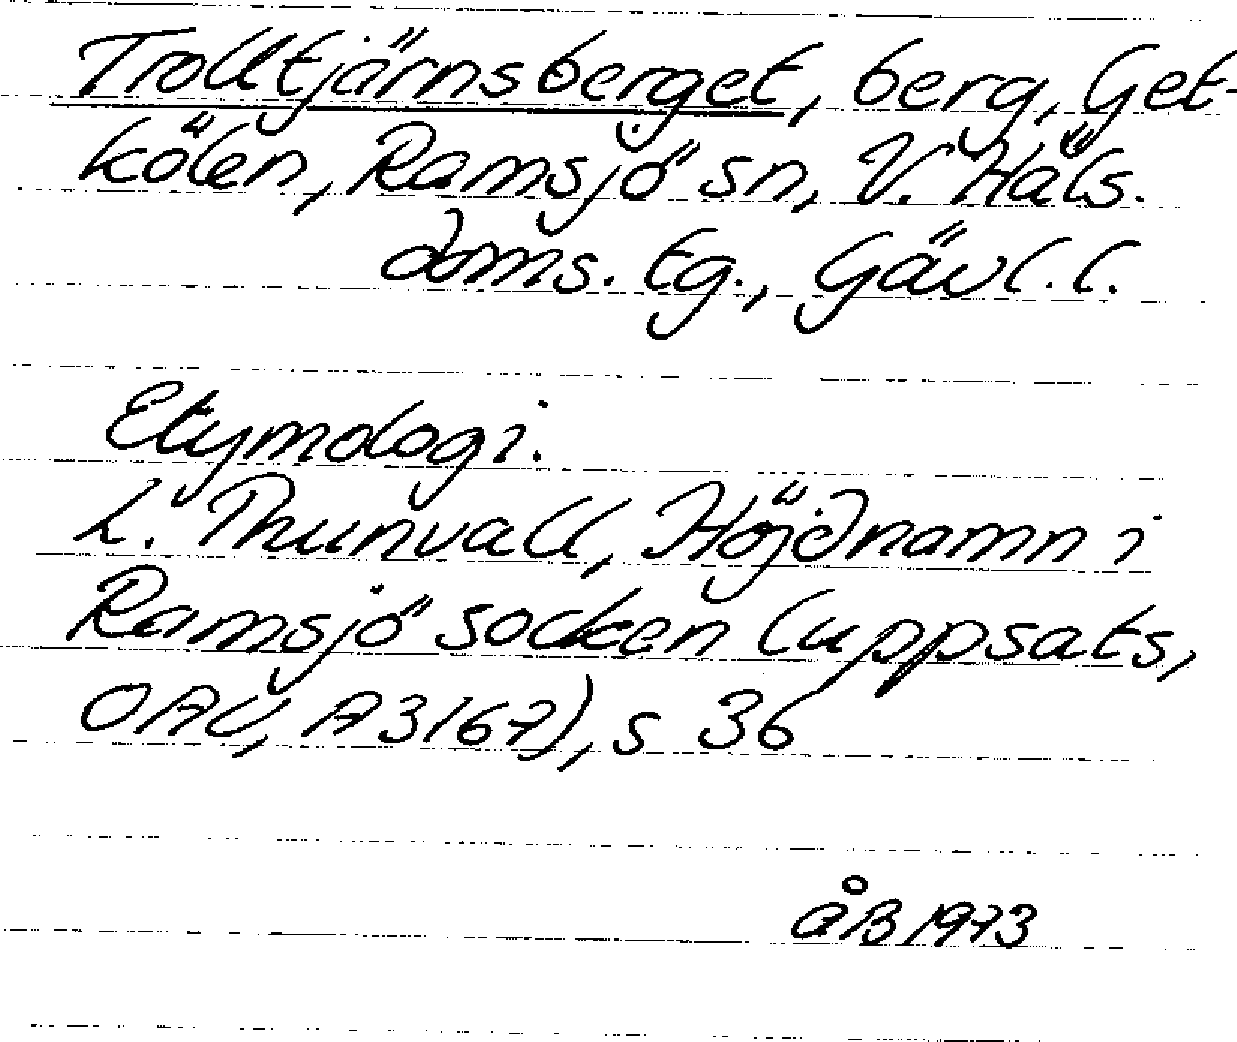 Trolltjärnsberget, berg, Get-
kölen, Ramsjö sn, V. Häls.
doms. tg., Gävl. l.
Etymologi.
L. Thunvall, Höjdnamn i
Ramsjö socken (uppsats,
OAU, A3167), s 36
åB 1973